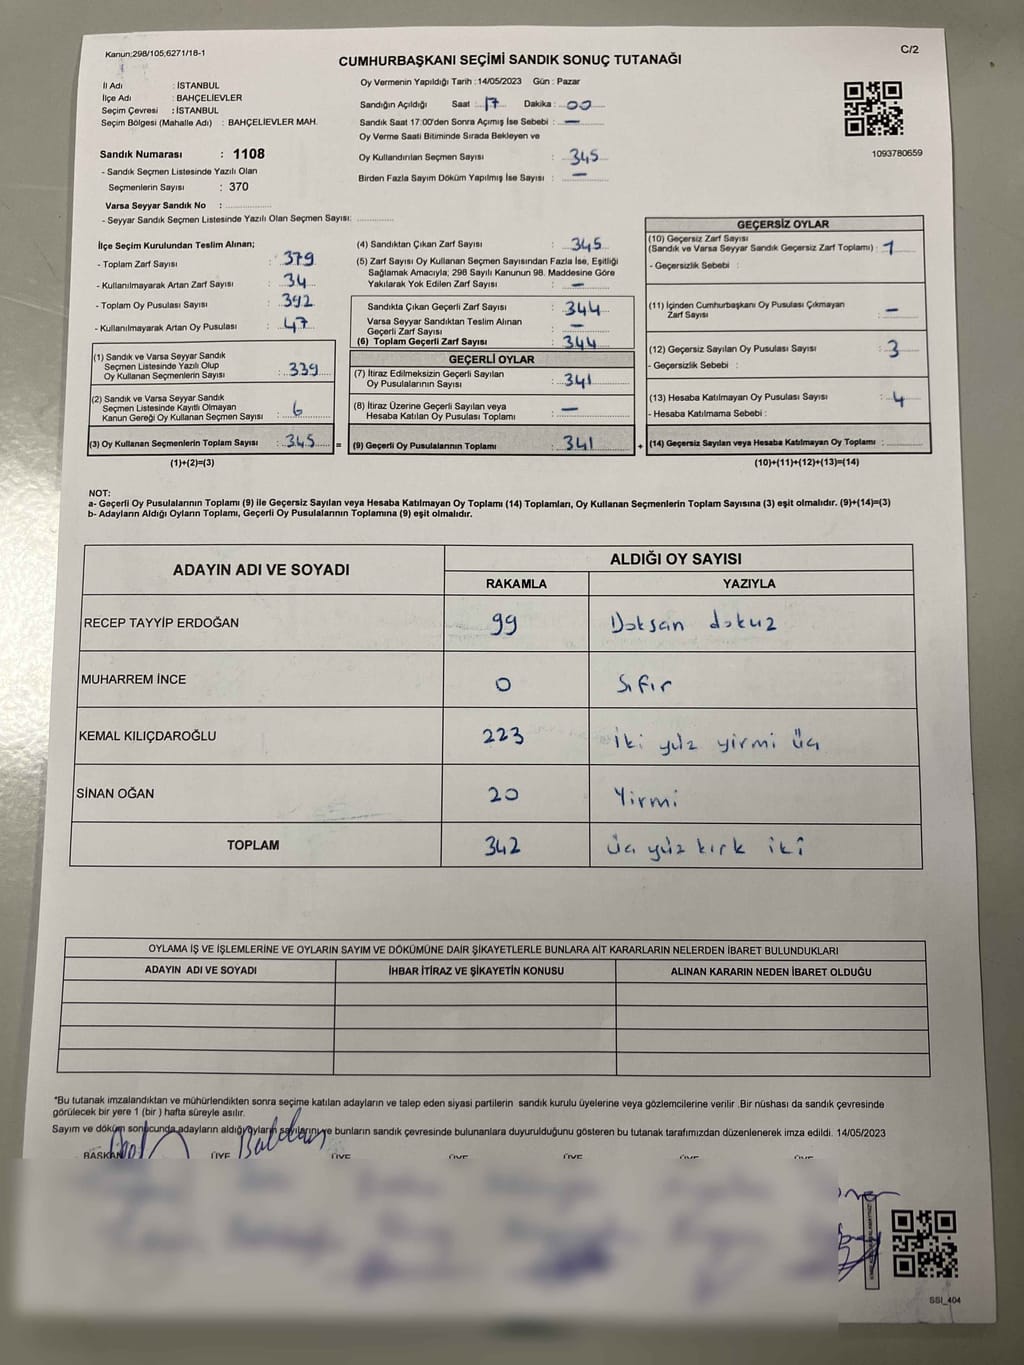 Kanun;298/105;6271/18-1
C/2
CUMHURBAŞKANI SEÇİMİ SANDIK SONUÇ TUTANAĞI
İl Adı : İSTANBUL
İlçe Adı : BAHÇELİEVLER
Seçim Çevresi : İSTANBUL
Seçim Bölgesi (Mahalle Adı) : BAHÇELİEVLER MAH.
Sandık Numarası : 1108
- Sandık Seçmen Listesinde Yazılı Olan
Seçmenlerin Sayısı : 370
Varsa Seyyar Sandık No :
- Seyyar Sandık Seçmen Listesinde Yazılı Olan Seçmen Sayısı:
Oy Vermenin Yapıldığı Tarih : 14/05/2023 Gün : Pazar
Sandığın Açıldığı Saat : 17 Dakika : 00
Sandık Saat 17:00'den Sonra Açımış İse Sebebi : —
Oy Verme Saati Bitiminde Sırada Bekleyen ve
Oy Kullandırılan Seçmen Sayısı : 345
Birden Fazla Sayım Döküm Yapılmış İse Sayısı : —
1093780659
İlçe Seçim Kurulundan Teslim Alınan;
- Toplam Zarf Sayısı : 379
- Kullanılmayarak Artan Zarf Sayısı : 34
- Toplam Oy Pusulası Sayısı : 392
- Kullanılmayarak Artan Oy Pusulası : 47
(1) Sandık ve Varsa Seyyar Sandık
Seçmen Listesinde Yazılı Olup
Oy Kullanan Seçmenlerin Sayısı : 339
(2) Sandık ve Varsa Seyyar Sandık
Seçmen Listesinde Kayıtlı Olmayan
Kanun Gereği Oy Kullanan Seçmen Sayısı : 6
(3) Oy Kullanan Seçmenlerin Toplam Sayısı : 345 =
(1)+(2)=(3)
(4) Sandıktan Çıkan Zarf Sayısı : 345
(5) Zarf Sayısı Oy Kullanan Seçmen Sayısından Fazla İse, Eşitliği
Sağlamak Amacıyla; 298 Sayılı Kanunun 98. Maddesine Göre
Yakılarak Yok Edilen Zarf Sayısı : —
Sandıkta Çıkan Geçerli Zarf Sayısı : 344
Varsa Seyyar Sandıktan Teslim Alınan
Geçerli Zarf Sayısı : —
(6) Toplam Geçerli Zarf Sayısı : 344
GEÇERLİ OYLAR
(7) İtiraz Edilmeksizin Geçerli Sayılan
Oy Pusulalarının Sayısı : 341
(8) İtiraz Üzerine Geçerli Sayılan veya
Hesaba Katılan Oy Pusulası Toplamı : —
(9) Geçerli Oy Pusulalarının Toplamı : 341 +
GEÇERSİZ OYLAR
(10) Geçersiz Zarf Sayısı
(Sandık ve Varsa Seyyar Sandık Geçersiz Zarf Toplamı) : 1
- Geçersizlik Sebebi :
(11) İçinden Cumhurbaşkanı Oy Pusulası Çıkmayan
Zarf Sayısı : —
(12) Geçersiz Sayılan Oy Pusulası Sayısı : 3
- Geçersizlik Sebebi :
(13) Hesaba Katılmayan Oy Pusulası Sayısı : 4
- Hesaba Katılmama Sebebi :
(14) Geçersiz Sayılan veya Hesaba Katılmayan Oy Toplamı :
(10)+(11)+(12)+(13)=(14)
NOT:
a- Geçerli Oy Pusulalarının Toplamı (9) ile Geçersiz Sayılan veya Hesaba Katılmayan Oy Toplamı (14) Toplamları, Oy Kullanan Seçmenlerin Toplam Sayısına (3) eşit olmalıdır. (9)+(14)=(3)
b- Adayların Aldığı Oyların Toplamı, Geçerli Oy Pusulalarının Toplamına (9) eşit olmalıdır.
ADAYIN ADI VE SOYADI ALDIĞI OY SAYISI
RAKAMLA YAZIYLA
RECEP TAYYİP ERDOĞAN 99 Doksan dokuz
MUHARREM İNCE 0 Sıfır
KEMAL KILIÇDAROĞLU 223 İki yüz yirmi üç
SİNAN OĞAN 20 Yirmi
TOPLAM 342 üç yüz kırk iki
OYLAMA İŞ VE İŞLEMLERİNE VE OYLARIN SAYIM VE DÖKÜMÜNE DAİR ŞİKAYETLERLE BUNLARA AİT KARARLARIN NELERDEN İBARET BULUNDUKLARI
ADAYIN ADI VE SOYADI İHBAR İTİRAZ VE ŞİKAYETİN KONUSU ALINAN KARARIN NEDEN İBARET OLDUĞU
*Bu tutanak imzalandıktan ve mühürlendikten sonra seçime katılan adayların ve talep eden siyasi partilerin sandık kurulu üyelerine veya gözlemcilerine verilir .Bir nüshası da sandık çevresinde
görülecek bir yere 1 (bir ) hafta süreyle asılır.
Sayım ve döküm sonucunda adayların aldığı oyların sayılarını ve bunların sandık çevresinde bulunanlara duyurulduğunu gösteren bu tutanak tarafımızdan düzenlenerek imza edildi. 14/05/2023
BAŞKAN ÜYE ÜYE ÜYE ÜYE ÜYE ÜYE
SSI_404